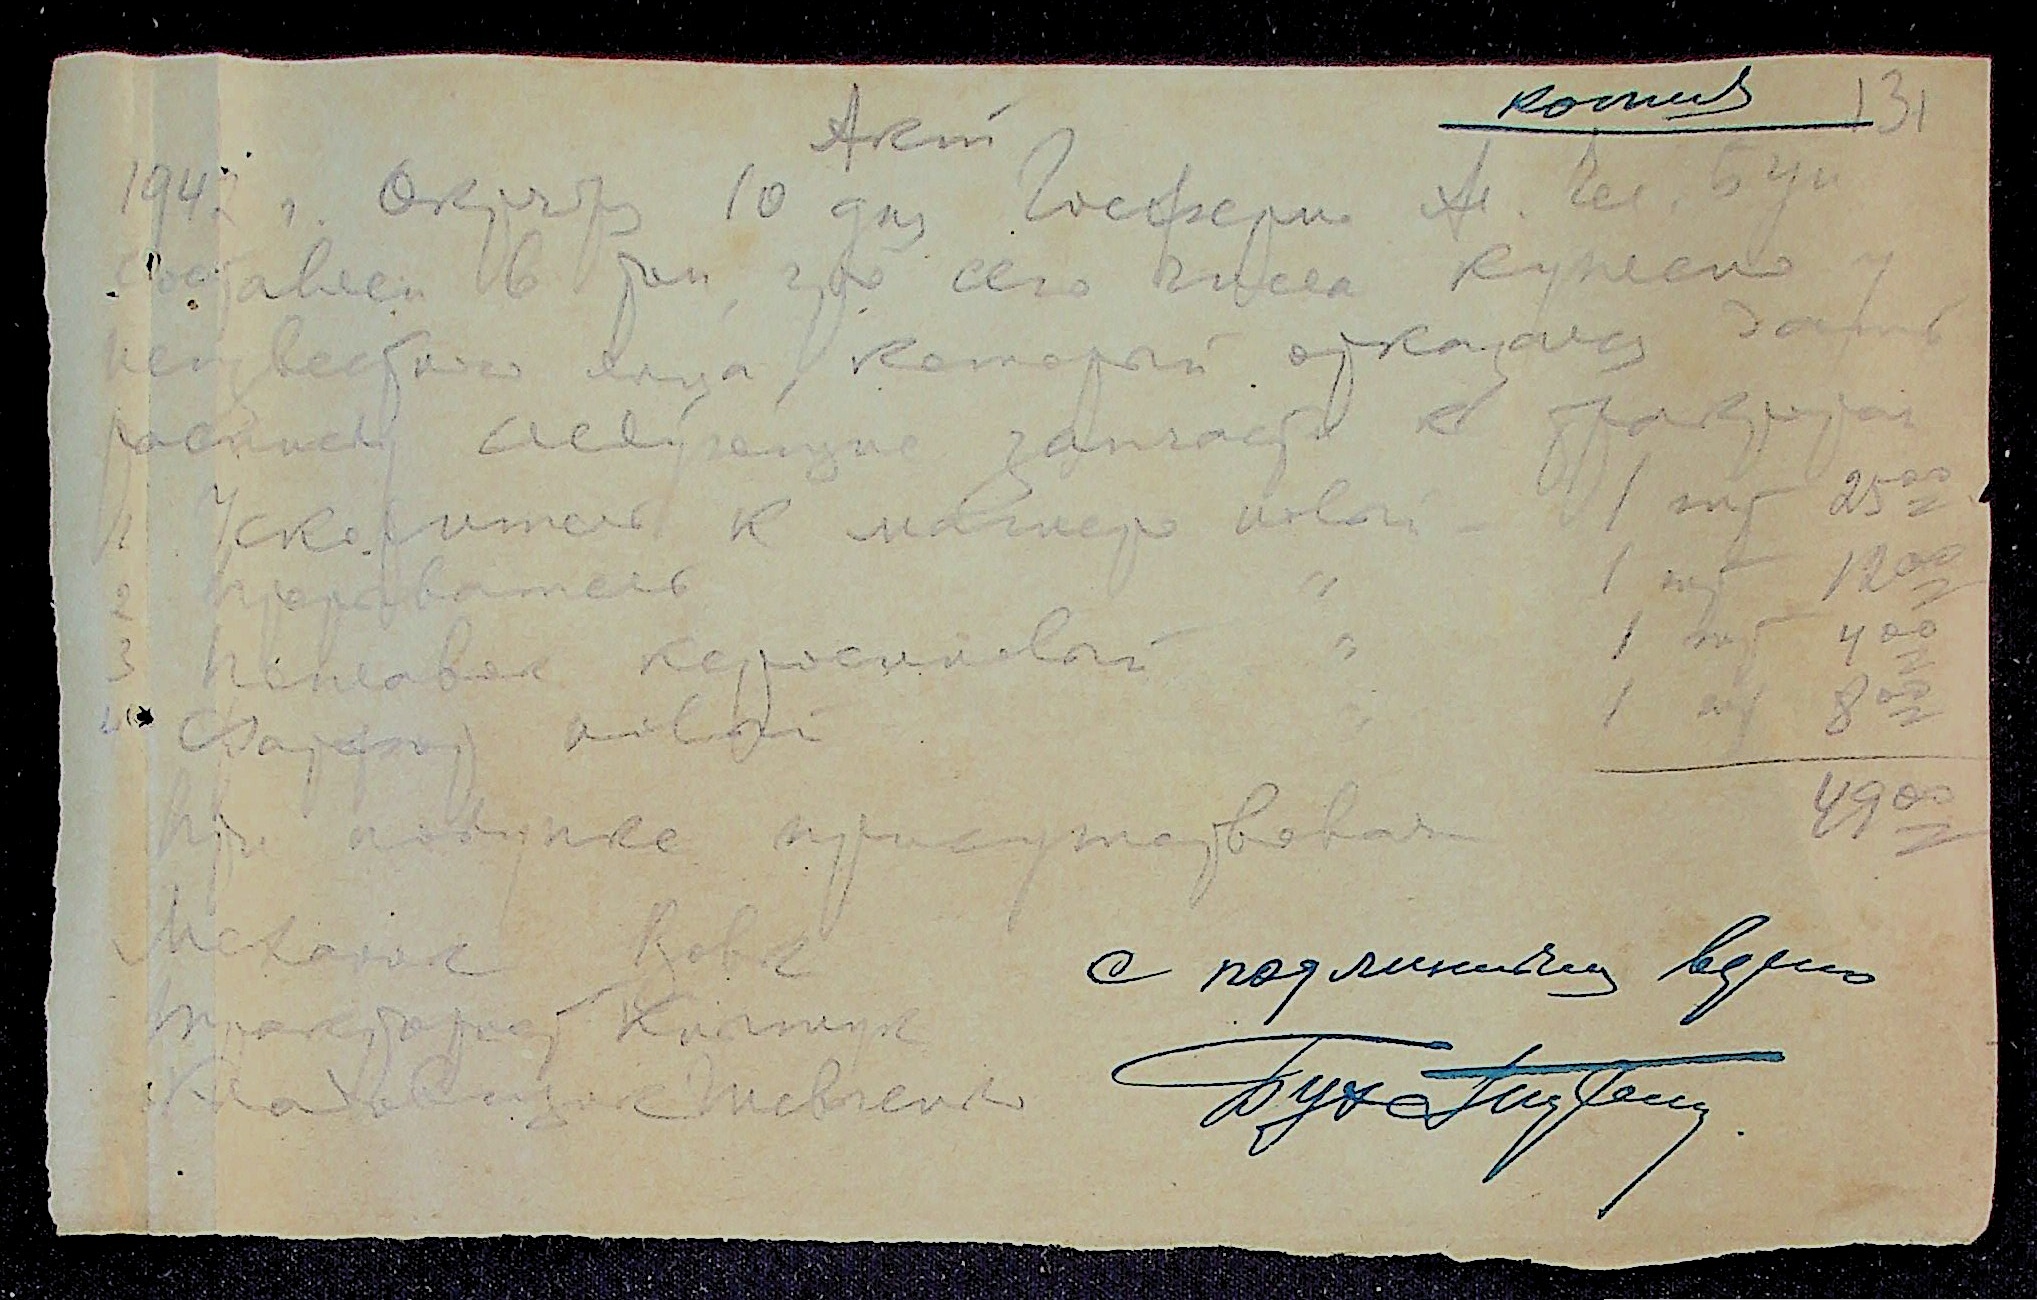 копия 131
Акт
1942 г. Октября 10 дня Госферма
составлен в том, что сего числа куплено у
неизвестного лица, который отказался дать
расписку следующие запчасти к тракторам
1 Ускоритель к магнето новый - 1 шт 25 00
2 Прерыватель " 1 шт 12 00
3 Поплавок керосиновый " 1 шт 4 00
4 новый " 1 шт 8 00
49 00
При покупке присутствовали
Механик Вовк
Тракторист
Кладовщик Шевченко
с подлинным верно
Бух